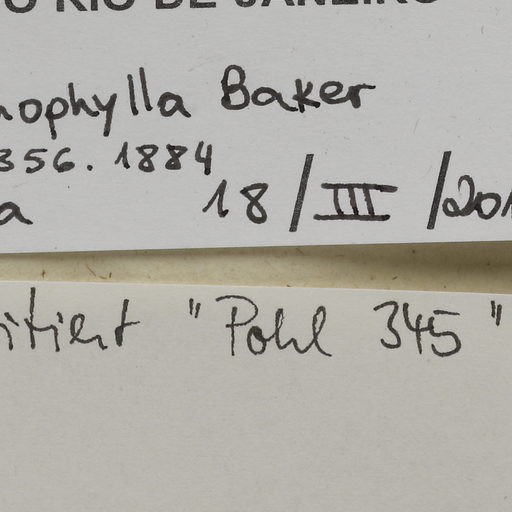 O RIO DE JANEIRO
nophylla Baker
356. 1884
a 18/III/201
itiert "Pohl 345"